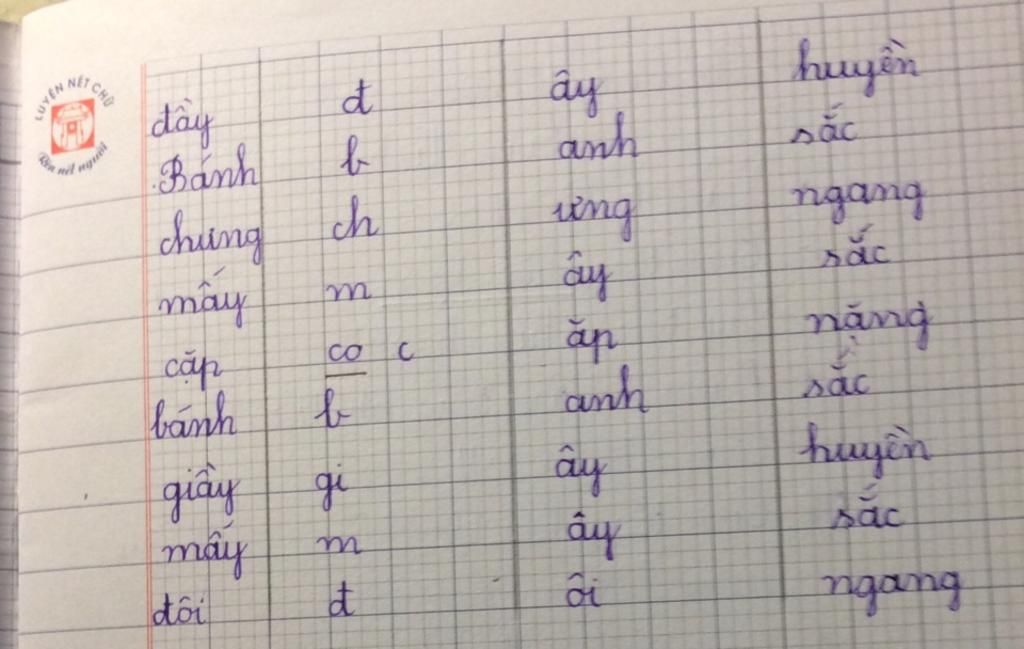 LUYỆN NÉT CHỮ
Rèn nết người
đầy đ ây huyền
Bánh b anh sắc
chưng ch ưng ngang
mấy m ây sắc
cặp co c ăp nặng
bánh b anh sắc
giầy gi ây huyền
mấy m ây sắc
đôi đ ôi ngang